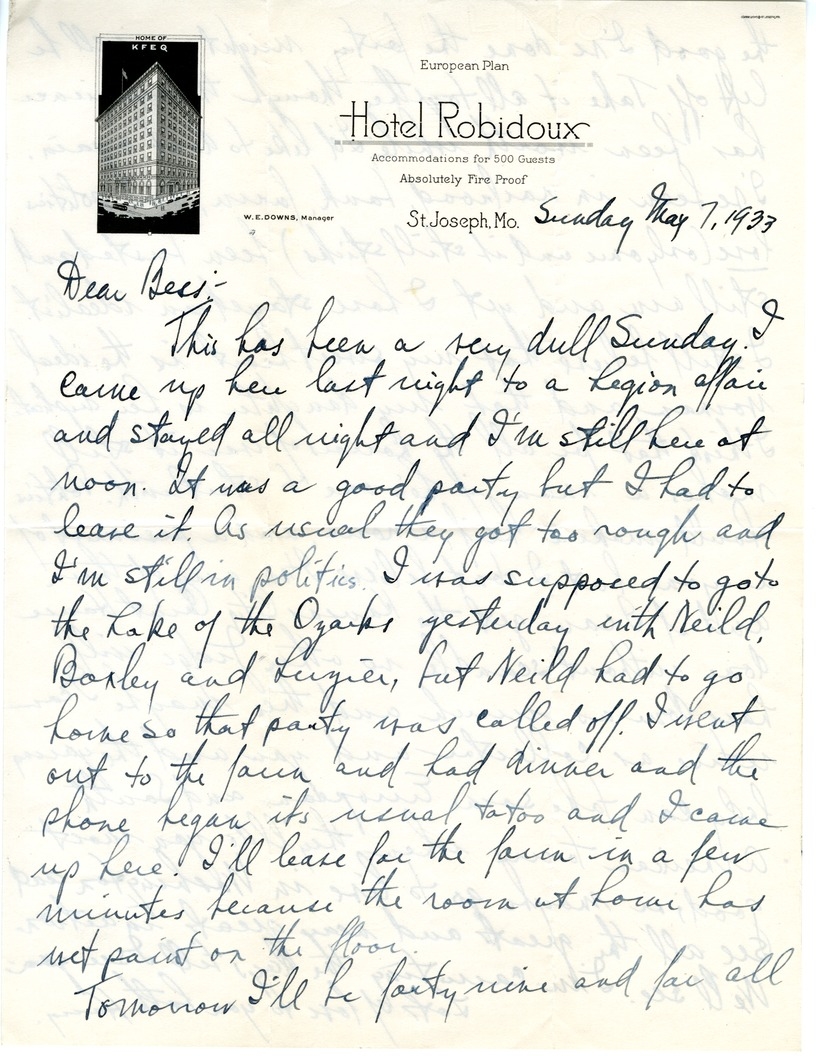 HOME OF
KFEQ
European Plan
Hotel Robidoux
Accommodations for 500 Guests
Absolutely Fire Proof
W. E. DOWNS, Manager
St. Joseph, Mo. Sunday May 7, 1933
Dear Bess:-
This has been a very dull Sunday. I
came up here last night to a Legion affair
and stayed all night and I'm still here at
noon. It was a good party but I had to
leave it. As usual they got too rough and
I'm still in politics. I was supposed to go to
the Lake of the Ozarks yesterday with Neild,
Boxley and Luzier, but Neild had to go
home so that party was called off. I went
out to the farm and had dinner and the
phone began its usual tatoo and I came
up here. I'll leave for the farm in a few
minutes because the room at home has
wet paint on the floor.
Tomorrow I'll be forty nine and for all